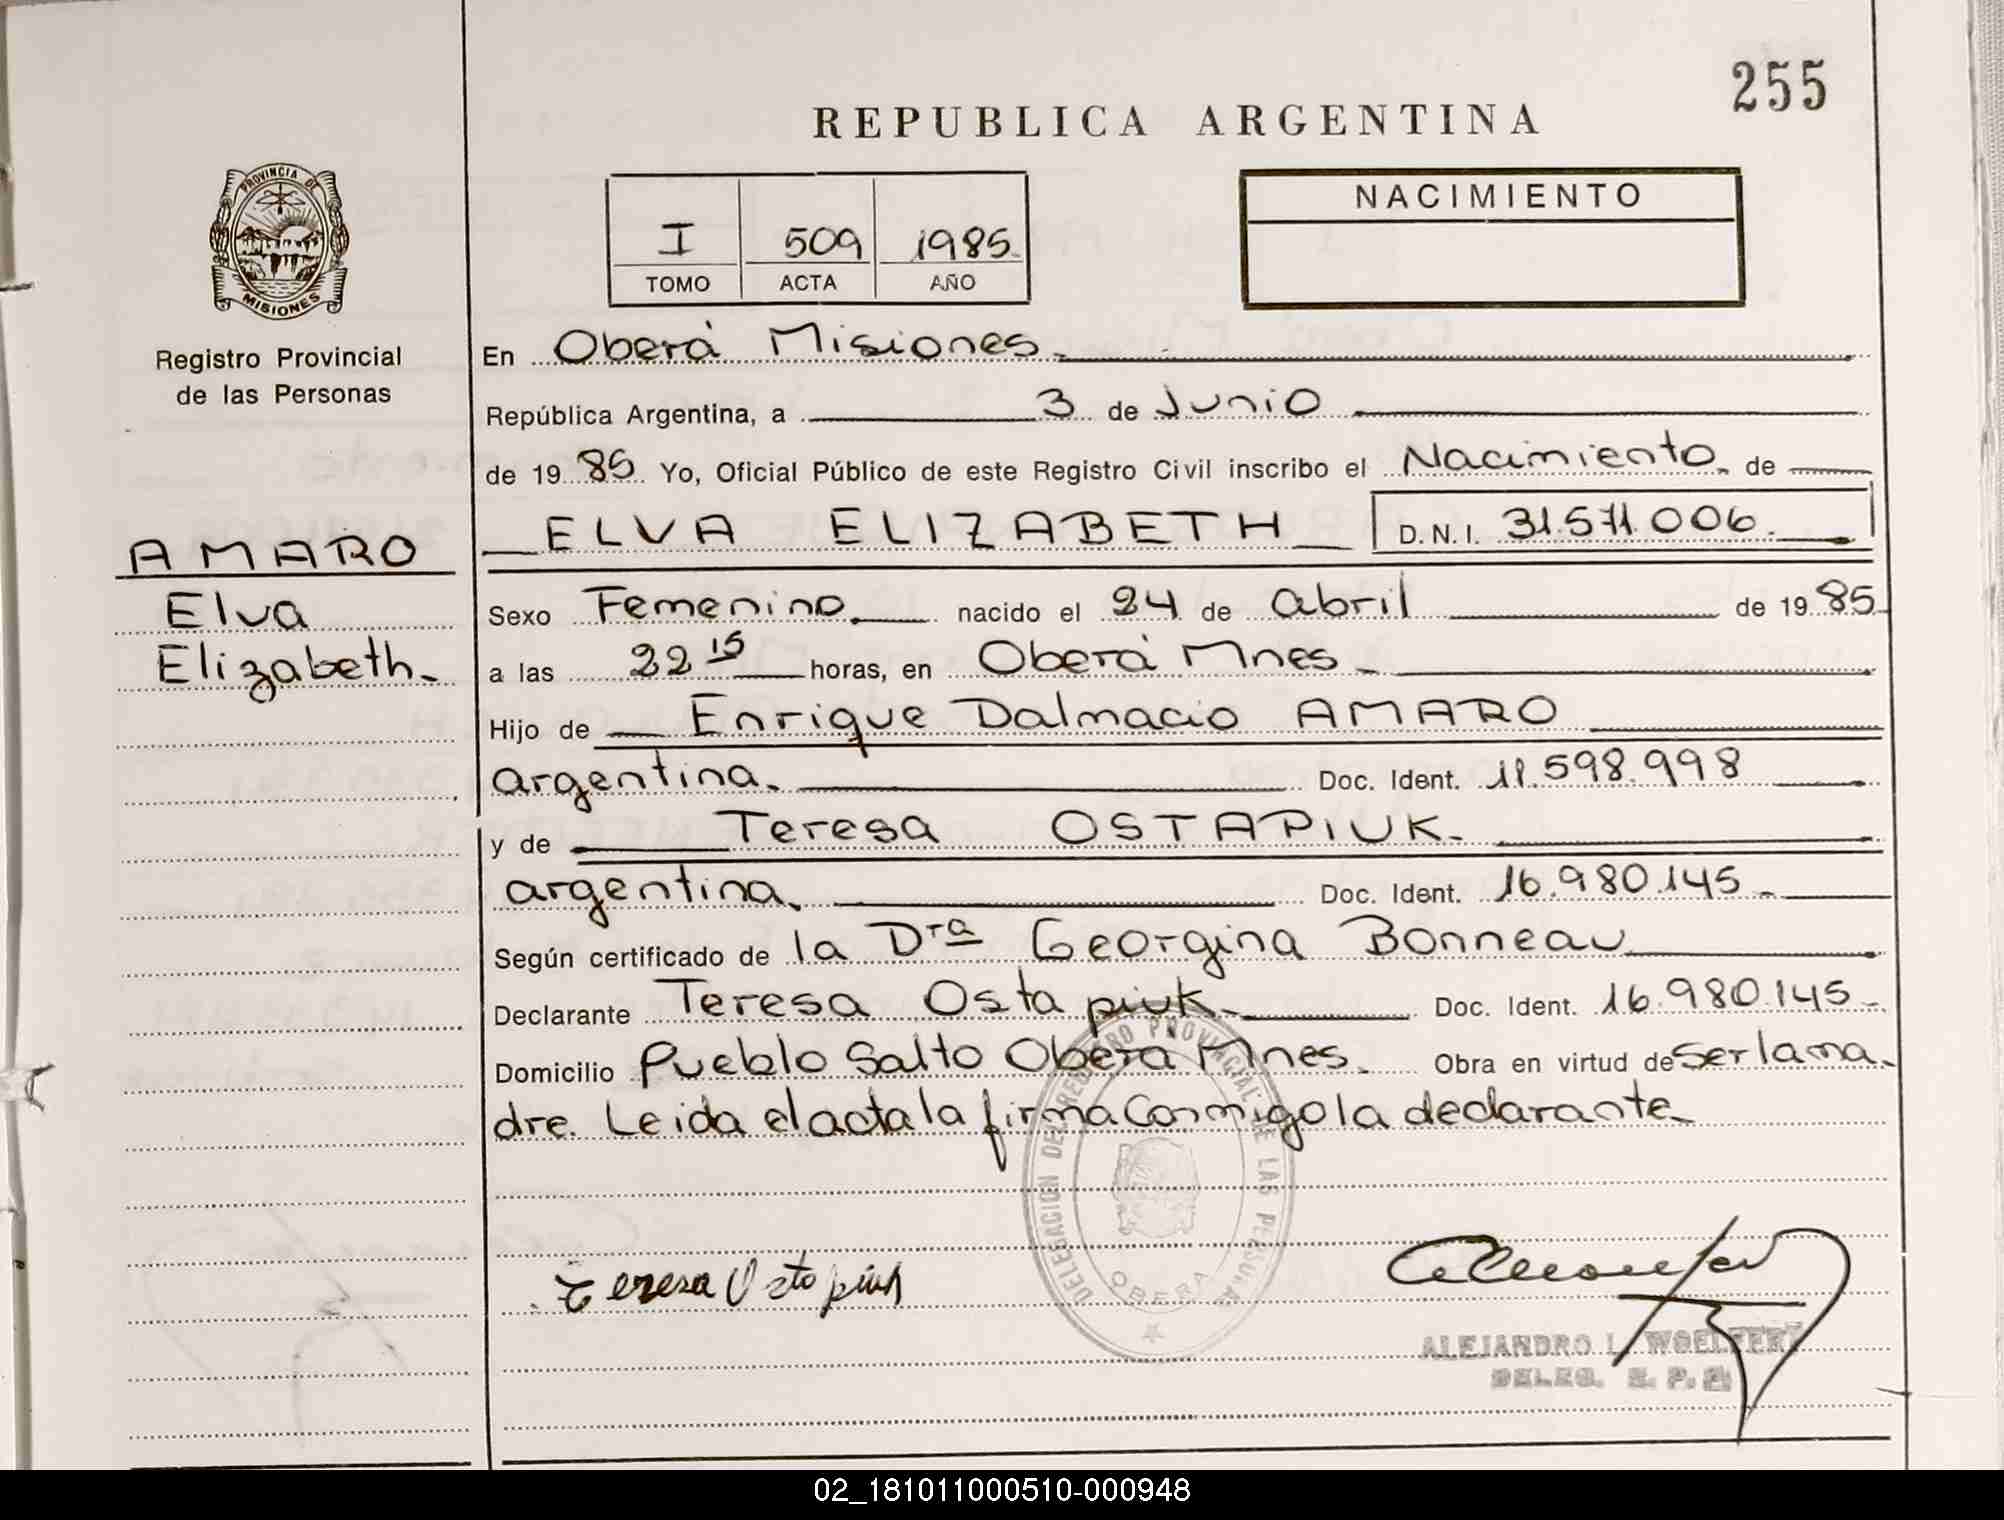 255
REPUBLICA ARGENTINA
PROVINCIA DE
MISIONES
I 509 1985
TOMO ACTA AÑO
NACIMIENTO
Registro Provincial
de las Personas
En Oberá Misiones
República Argentina, a 3 de Junio
de 1985 Yo, Oficial Público de este Registro Civil inscribo el Nacimiento de
ELVA ELIZABETH D.N.I. 31.571.006
AMARO
Elva
Elizabeth
Sexo Femenino nacido el 24 de abril de 1985
a las 22 15 horas, en Oberá Mnes
Hijo de Enrique Dalmacio AMARO
argentina. Doc. Ident. 11.598.998
y de Teresa OSTAPIUK
argentina. Doc. Ident. 16.980.145
Según certificado de la Dra Georgina Bonneau
Declarante Teresa Ostapiuk Doc. Ident. 16.980.145
Domicilio Pueblo Salto Oberá Mnes. Obra en virtud de ser la ma
dre. Leida el acta la firma Conmigo la declarante
DELEGACION DEL REGISTRO PROVINCIAL DE LAS PERSONAS
OBERA
Teresa Ostopiuk
ALEJANDRO L. WOELFERT
DELEG. R. P. P.
02_181011000510-000948